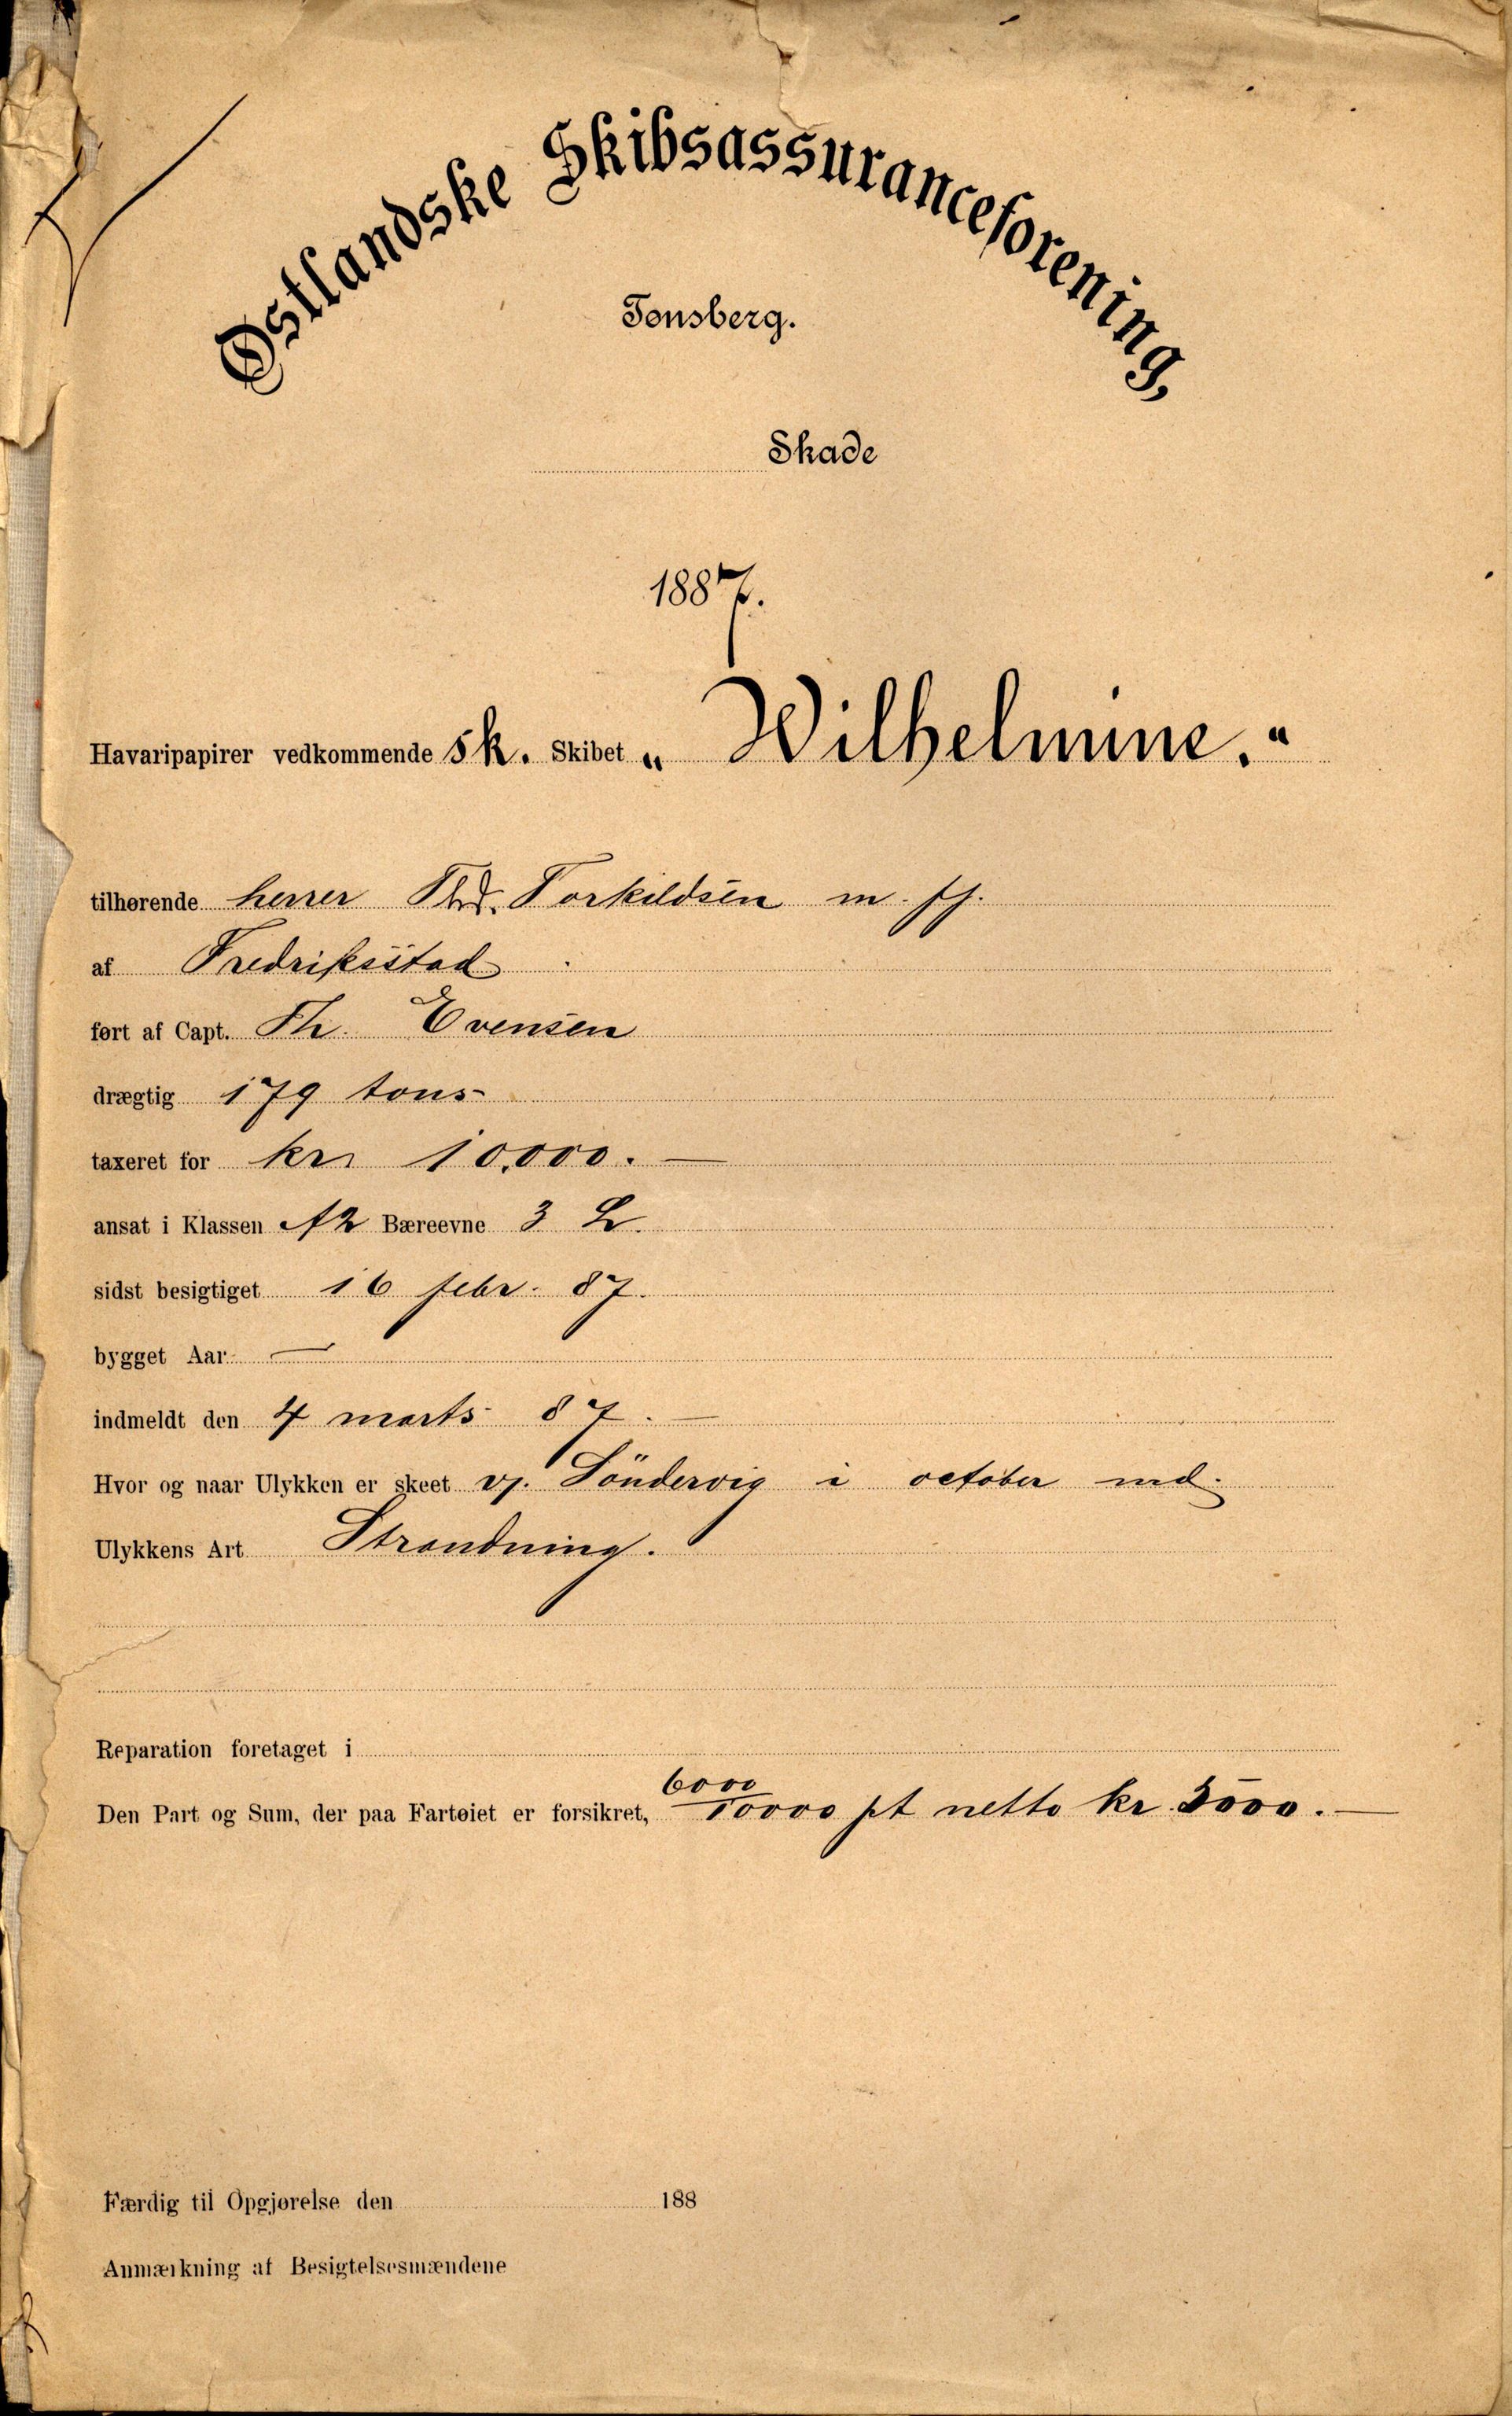 Østlandske Skibsassuranceforening,
Tønsberg.
Skade
1887.
Havaripapirer vedkommende Sk. Skibet „Wilhelmine."
tilhørende herrer Torkildsen m. fl.
af Fredriksstad
ført af Capt. Th. Evensen
drægtig 179 tons
taxeret for kr 10.000.—
ansat i Klassen A2 Bæreevne 3 L.
sidst besigtiget 16 febr. 87.
bygget Aar —
indmeldt den 4 marts 87.—
Hvor og naar Ulykken er skeet v. Söndervig i october md.
Ulykkens Art Strandning.
Reparation foretaget i
Den Part og Sum, der paa Fartøiet er forsikret, 6000/10000 pt netto kr. 3000.—
Færdig til Opgjørelse den 188
Anmærkning af Besigtelsesmændene